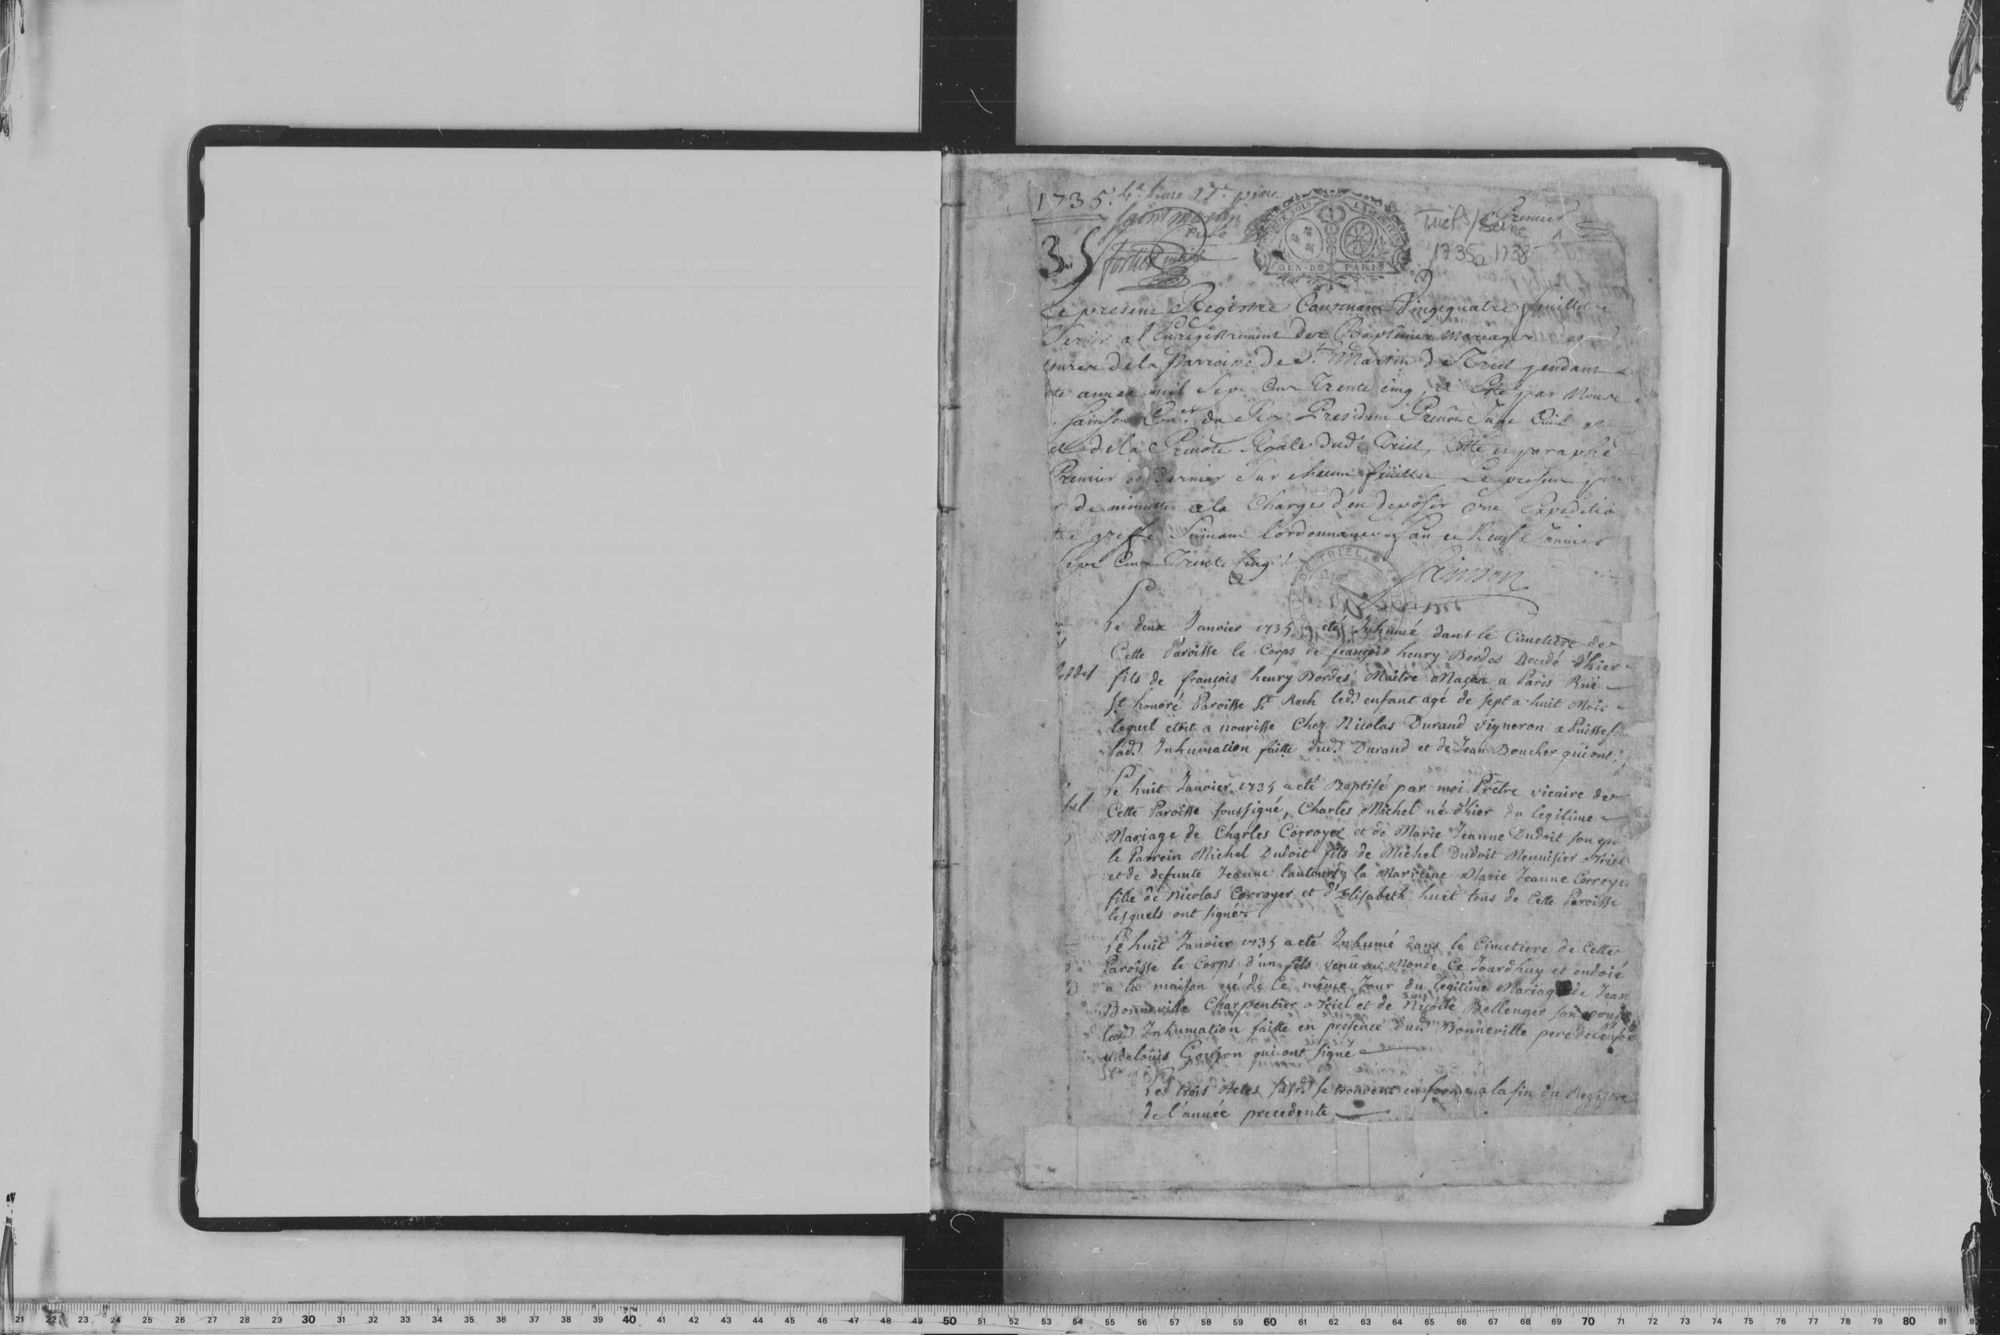 1735.
Premier
Triel s/Seine
1735 a 1738
3.s
GEN. DE PARIS
Le present Registre Contenant Vingtquatre feuillets
Servir a l'Enregistrement des Baptemes Mariages et
tures de la Parroisse de St Martin de Triel pendant
te année mil Sept Cent Trente cinq, a Eté par Nous
Sainson Coner du Roy President Prevôt Juge Civil et
el de la Prevôté Royale dud. Triel, Cotté et paraphé
Premier et Dernier Sur chacun feüillet Le present pour
r de minutte a la Charge d'en deposer une Expeditio
greffe Suivant l'ordonnance fait ce Neuf Janvier
Sept Cent Trente Cinq
Sainson
TRIEL
Le deux Janvier 1735 a eté Inhumé dans le Cimetiere de
Cette Paroisse le Corps de françois henry Bordes Decedé d'hier
fils de françois henry Bordes Maitre Maçon a Paris Rue
St honoré Paroisse St Roch led. enfant agé de sept a huit Mois
lequel etoit a nourisse Chez Nicolas Durand vigneron a Puissef
lad. Inhumation faitte dud. Durand et de Jean Boucher qui ont
Le huit Janvier 1735 a eté Baptisé par moi Prêtre vicaire de
Cette Paroisse soussigné, Charles Michel né d'hier du legitime
Mariage de Charles Corroyer et de Marie Jeanne Dudoit son ep
le Parrein Michel Dudoit fils de Michel Dudoit Menuisier a Triel
et de defunte Jeanne la Marreine Marie Jeanne Corroye
fille de Nicolas Corroyer et d'Elisabeth huet tous de Cette Paroisse
lesquels ont signé
Le huit Janvier 1735 a eté Inhumé dans le Cimetiere de Cette
Paroisse le Corps d'un fils venû au Monde Ce Jourdhuy et ondoié
a la maison né de Ce même Jour du legitime Mariage de Jean
Bonneville Charpentier a Triel et de Nicolle Bellenger son epouse
lad. Inhumation faitte en presence dud. Bonneville pere de l'enfant
et de louis Goujon qui ont signé
Les trois Actes susd. se trouvent en forme a la fin du Registre
de l'année precedente